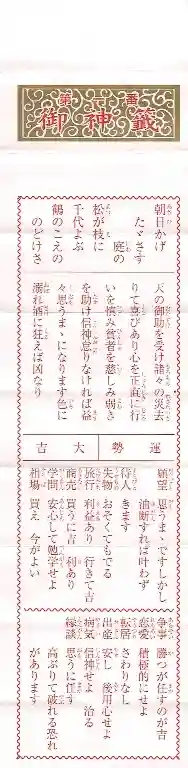 第 番
御神籤
朝日かげ
たゞさす
庭の
松が枝に
千代よぶ
鶴のこえの
のどけさ
天の御助を受け諸々の災去
りて喜びあり心を正直に行
いを慎み貧者を慈しみ弱き
を助け信神怠りなければ益
々思うまゝになります色に
溺れ酒に狂えば凶なり
運勢 大吉
願望 思うまゝですしかし
油断すれば叶わず
待人 きます
失物 おそくてもでる
旅行 利益あり 行きて吉
商売 買うに吉 利あり
学問 安心して勉学せよ
相場 買え 今がよい
争事 勝つが任すのが吉
恋愛 積極的にせよ
転居 さわりなし
出産 安し 後用心せよ
病気 信神せよ 治る
縁談 思うに任す
高ぶりて破れる恐れ
があります